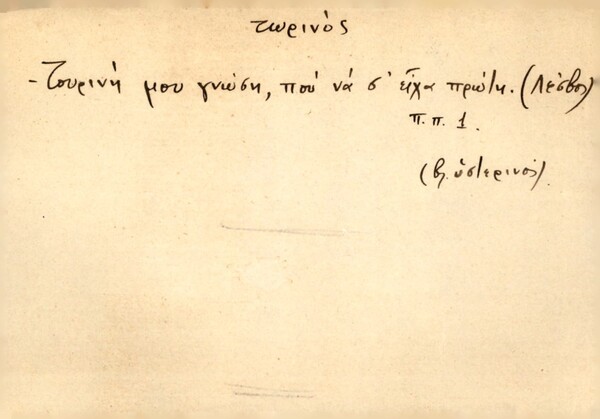 τωρινὸς
- Τουρινή μου γνώση, πού νά σ' εἶχα πρώτη. (Λέσβος)
π.π. 1.
(βλ. ὑστερινός)